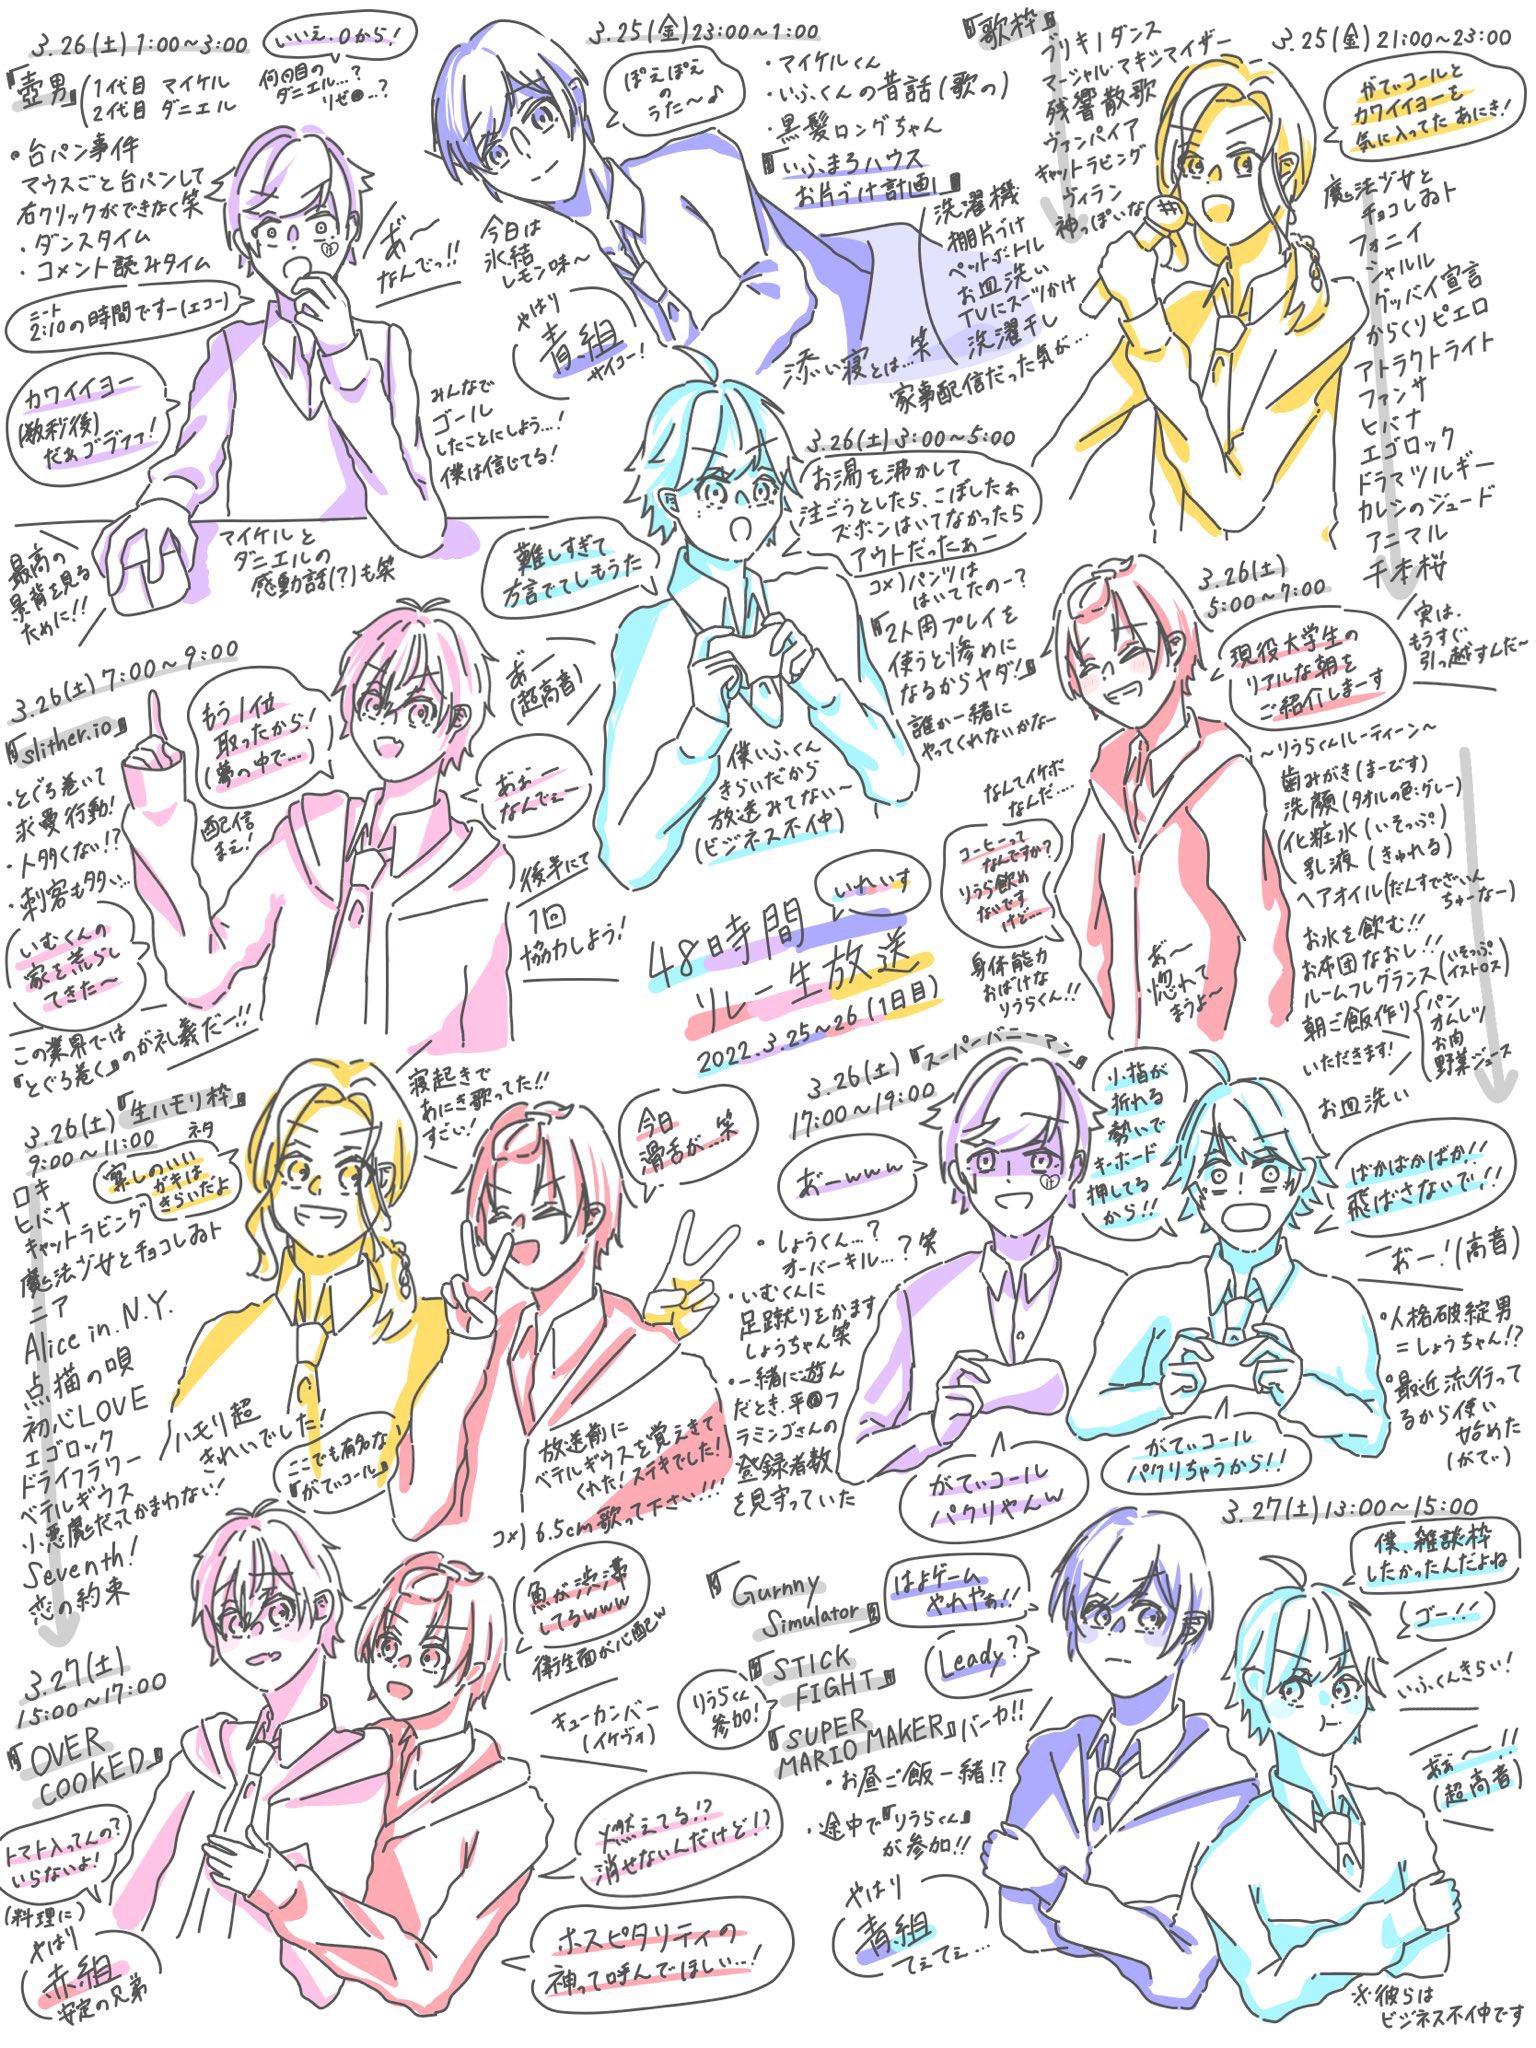 3.26(土) 1:00〜3:00
いいえ、0から!
何回目の
ダニエル…?
『壺男』
1代目 マイケル
2代目 ダニエル
・台パン事件
マウスごと台パンして
右クリックができなく笑
・ダンスタイム
・コメント読みタイム
あ゛〜
なんでっ!!
ニート
2:10の時間ですー(エコー)
カワイイヨー
(数秒後)
だぁゴラ゛ァァ!
みんなで
ゴール
したことにしよう…!
僕は信じてる!
最高の
景背を見る
ために!!
マイケルと
ダニエルの
感動話(?)も笑
3.25(金)23:00〜1:00
ぽえぽえ
のうた〜♪
・マイケルくん
・いふくんの昔話(歌の)
・黒髪ロングちゃん
『いふまろハウス
お片づけ計画』
今日は
氷結
レモン味〜
やはり
青組
サイコー!
洗濯機
棚片づけ
ペットボトル
お皿洗い
TVにスーツかけ
洗濯干し
添い寝とは…笑
家事配信だった気が…
『歌枠』
3.25(金)21:00〜23:00
ブリキノダンス
マーシャル・マキシマイザー
残響散歌
ヴァンパイア
キャットラビング
ヴィラン
神っぽいな
がてぃコールと
カワイイヨーを
気に入ってた あにき!
魔法少女と
チョコレゐト
フォニイ
シャルル
グッバイ宣言
からくりピエロ
アトラクトライト
ファンサ
ヒバナ
エゴロック
ドラマツルギー
カレシのジュード
アニマル
千本桜
3.26(土)3:00〜5:00
お湯を沸かして
注ごうとしたら、こぼしたぁ
ズボンはいてなかったら
アウトだったぁー
難しすぎて
方言でてしもうた
コメ)パンツは
はいてたのー?
『2人用プレイを
使うと惨めに
なるからヤダ!』
誰か一緒に
やってくれないかなー
あ゛ー
(超高音)
僕いふくん
きらいだから
放送みてない〜
(ビジネス不仲)
3.26(土)
5:00〜7:00
現役大学生の
リアルな朝を
ご紹介しまーす
実は、
もうすぐ
引っ越すんだ〜
〜りうらくんルーティーン〜
歯みがき(まーびす)
洗顔(タオルの色:グレー)
化粧水(いそっぷ)
乳液(きゅれる)
ヘアオイル(だんすでざいん
ちゅーなー)
お水を飲む!!
お布団なおし!!
ルームフレグランス(いそっぷ
イストロス)
朝ご飯作り
パン
オムレツ
お肉
野菜ジュース
いただきます!
お皿洗い
なんてイケボ
なんだ….
コーヒーって
なんですか?
りうら飲め
ないです
けど…
身体能力
おばけな
りうらくん!!
あ゛〜
惚れて
まうよ〜
3.26(土)7:00〜9:00
『slither.io』
・とぐろ巻いて
求愛行動!
・人多くない!?
・刺客も多い…
もう1位
取ったから!
(夢の中で…)
配信
まえ!
おぉー
なんでぇー
後半にて
1回
協力しよう!
いむくんの
家を荒らし
てきた〜
この業界では
『とぐろ巻く』のが礼義だー!!
いれいす
48時間
リレー生放送
2022.3.25〜26(1日目)
3.26(土)
9:00〜11:00
『生ハモリ枠』
ネタ
察しのいい
ガキは
きらいだよ
寝起きで
あにき歌ってた!!
すごい!
今日
滑舌が…笑
ロキ
ヒバナ
キャットラビング
魔法少女とチョコレゐト
ニア
Alice in N.Y.
点描の唄
初心LOVE
エゴロック
ドライフラワー
ベテルギウス
小悪魔だってかまわない!
Seventh!
恋の約束
ハモリ超
きれいでした!
ここでも有名な
『がてぃコール』
放送前に
ベテルギウスを覚えきて
くれた!ステキでした!
コメ)6.5cm歌って下さい!!!
3.26(土)
17:00〜19:00
『スーパーバニーマン』
あ゛ーwww
小指が
折れる
勢いで
キーボード
押してる
から!!
ばかばかばか!!
飛ばさないで!!
お゛ー!(高音)
・しょうくん…?
オーバーキル…?笑
・いむくんに
足蹴りをかます
しょうちゃん笑
・一緒に遊ん
だとき、平●フ
ラミンゴさんの
登録者数
を見守っていた
がてぃコール
パクリやんw
がてぃコール
パクリちゃうから!!
・人格破綻男
=しょうちゃん!?
・最近流行って
るから使い
始めた
(がてぃ)
3.27(土)
15:00〜17:00
『OVER
COOKED』
魚が渋滞
してるwww
衛生面が心配w
キューカンバー
(イケヴォ)
トマト入ってんの?
いらないよ!
(料理に)
やはり
赤組
安定の兄弟
燃えてる!?
消せないんだけど!?
ホスピタリティの
神って呼んでほしい…!
3.27(土)13:00〜15:00
『Gummy
Simulator』
『STICK
FIGHT』
りうらくん
参加!
『SUPER
MARIO MAKER』
バーカ!!
・お昼ご飯一緒!?
・途中で『りうらくん』
が参加!!
はよゲーム
やれやぁ!!
Leady?
僕、雑談枠
したかったんだよね
ゴー!!
いふくんきらい!
あ゛ぉ〜!!
(超高音)
やはり
青組
てぇてぇ…
※彼らは
ビジネス不仲です